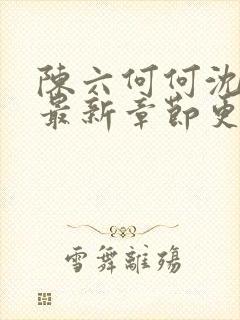 陳六何何沈
最新章節更
雪舞離殤